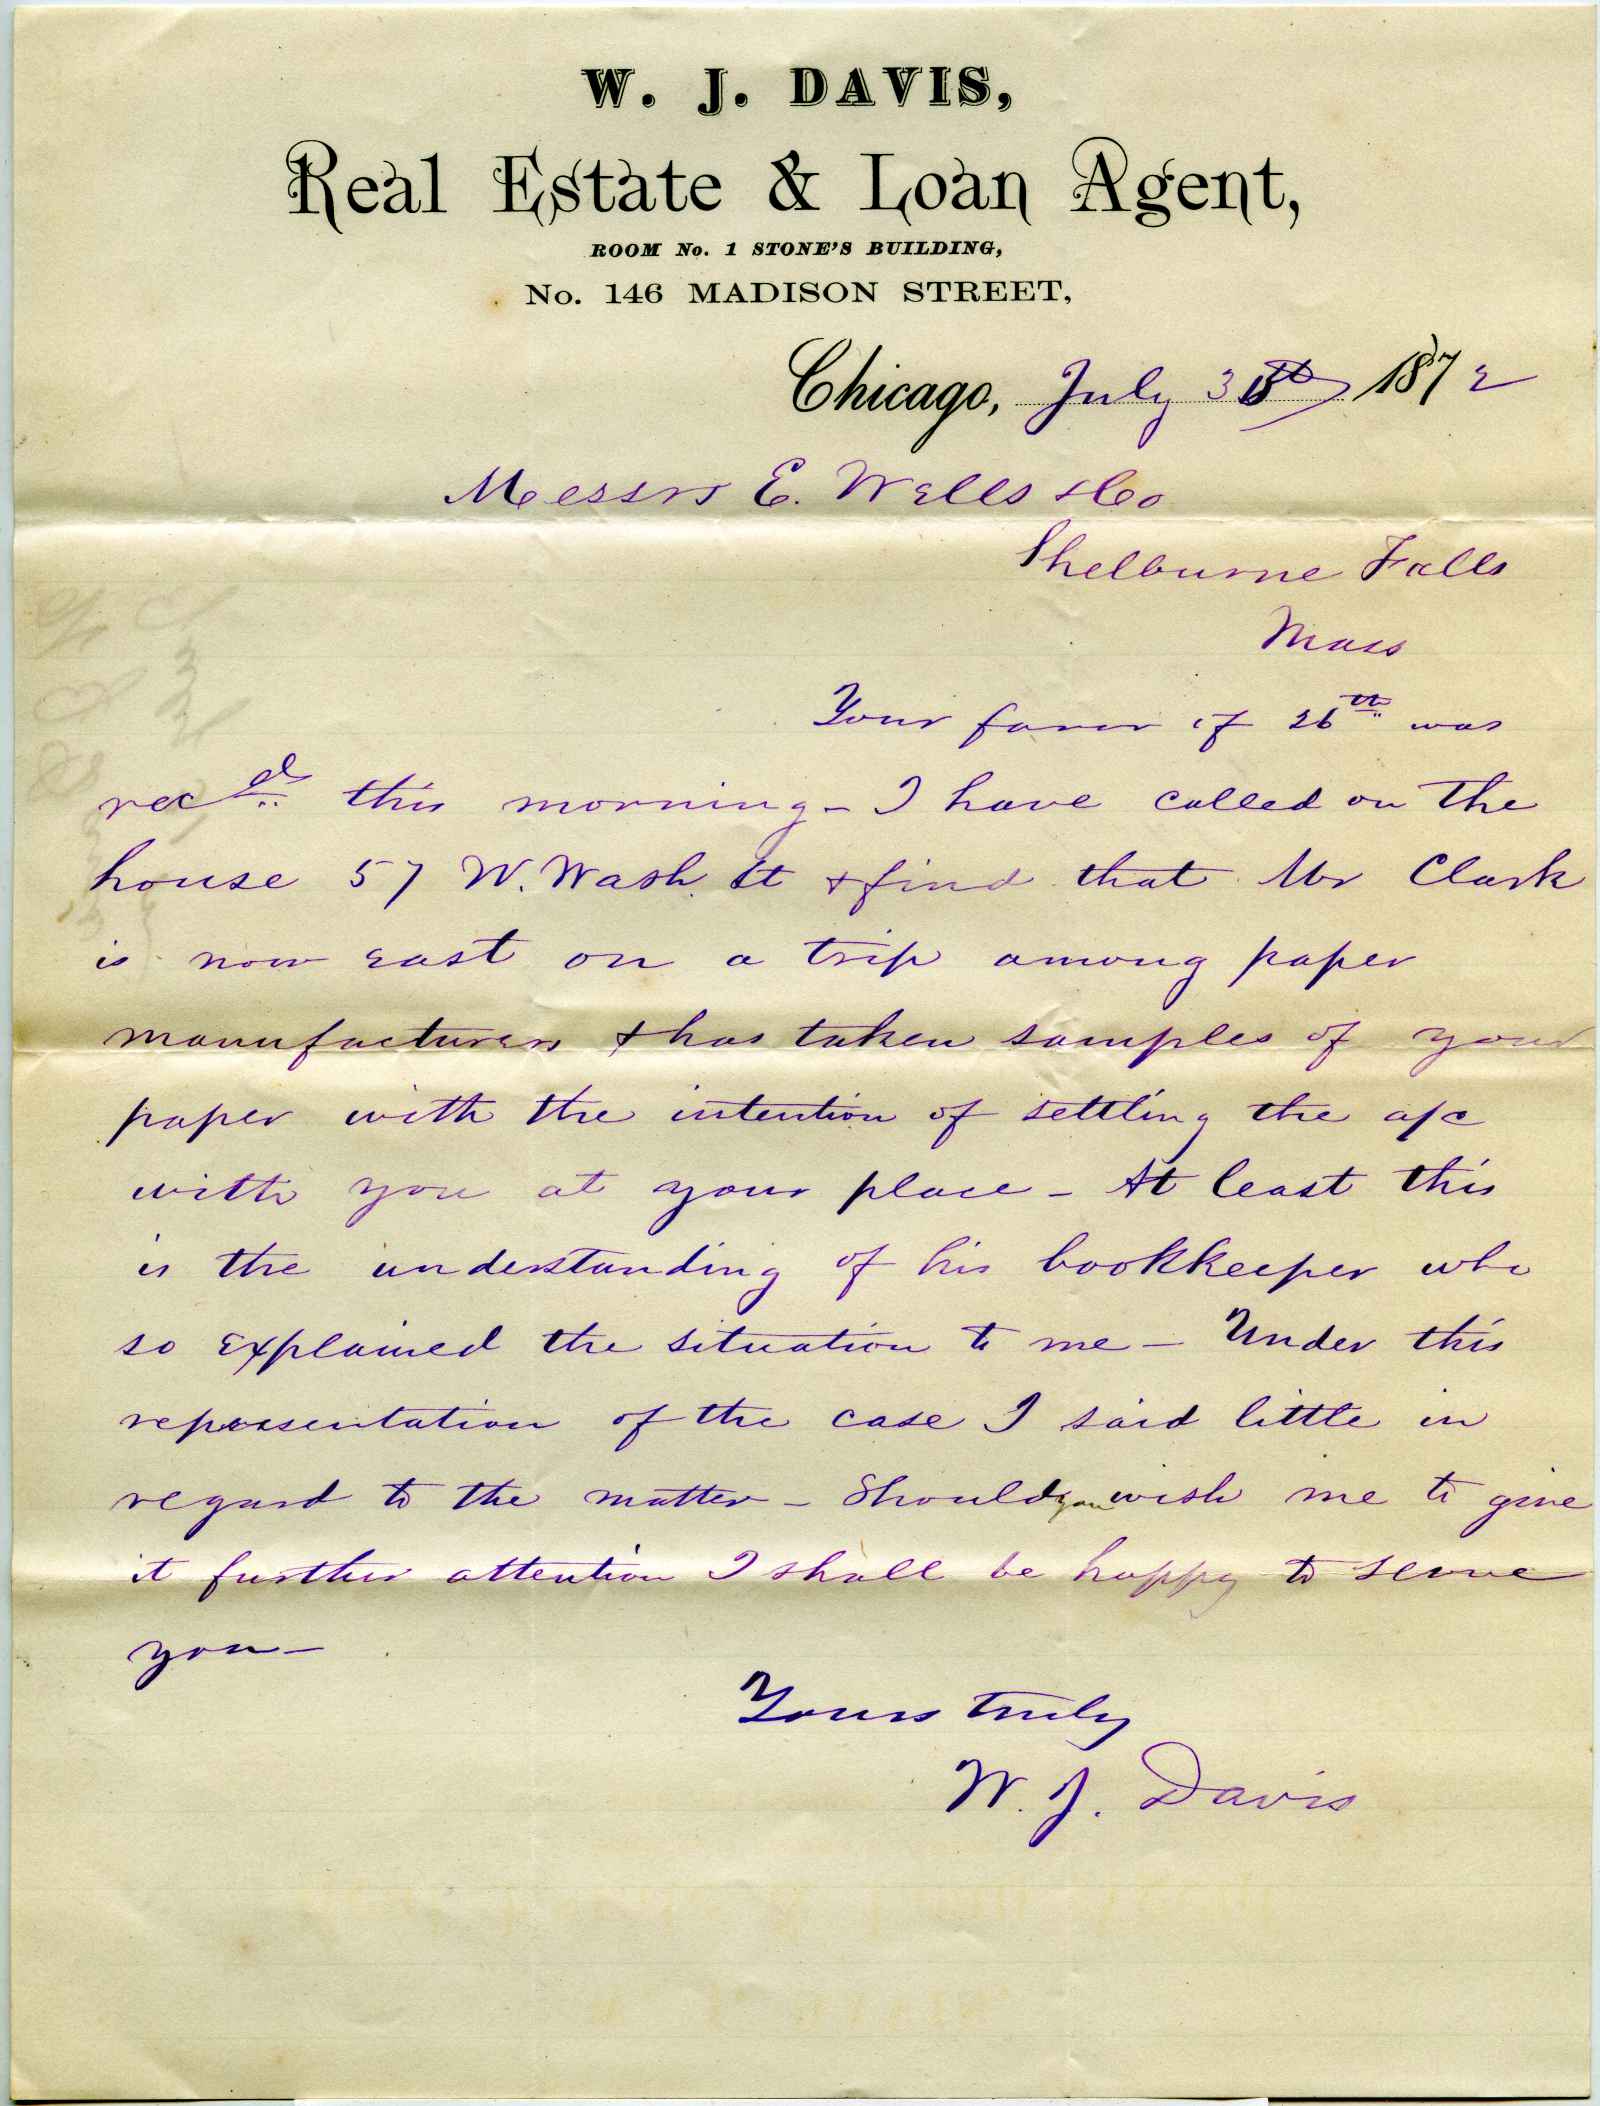 W. J. DAVIS,
Real Estate & Loan Agent,
ROOM No. 1 STONE'S BUILDING,
No. 146 MADISON STREET,
Chicago, July 30th 1872
Messrs E. Wells & Co
Shelburne Falls
Mass
Your favor of 26th was
recd this morning - I have called on the
house 57 W. Wash. St & find that Mr Clark
is now east on a trip among paper
manufacturers & has taken samples of your
paper with the intention of settling the a/c
with you at your place - At least this
is the understanding of his bookkeeper who
so explained the situation to me - Under this
representation of the case I said little in
regard to the matter - Should you wish me to give
it further attention I shall be happy to serve
you -
Yours truly
W. J. Davis